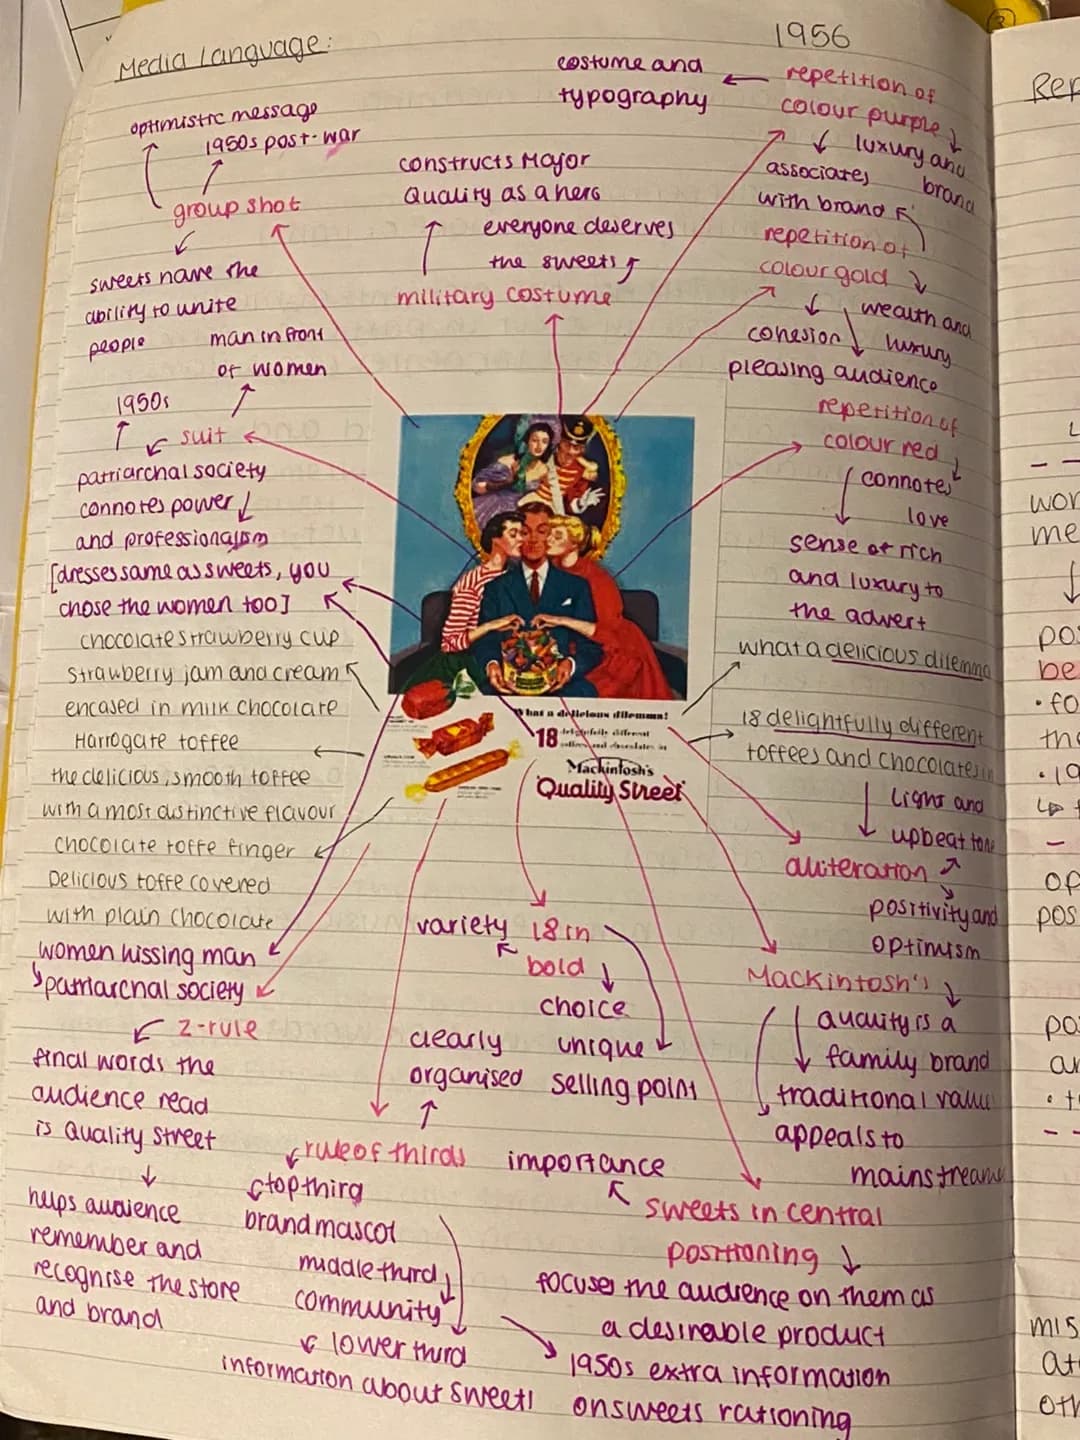 Media Language:
1956
optimistic message
1950s post-war
group shot
sweets have the
ability to unite
people
man in front
of women
1950s
suit
patriarchal society
connotes power
and professionalism
[dresses same as sweets, you
chose the women too]
chocolate strawberry cup
strawberry jam and cream
encased in milk chocolate
Harrogate toffee
the delicious, smooth toffee
with a most distinctive flavour
chocolate toffe finger
Delicious toffe covered
with plain chocolate
women kissing man
patriarchal society
z-rule
final words the
audience read
is Quality Street
helps audience
remember and
recognise the store
and brand
constructs Major
Quality as a hero
everyone deserves
the sweets
military costume
costume and
typography
repetition of
colour purple
luxury and
brand
associates
with brand
repetition of
colour gold
wealth and
luxury
cohesion
pleasing audience
repetition of
colour red
connotes
love
sense of rich
and luxury to
the advert
What a delicious dilemma!
18 delightfully different
toffees and chocolates in
Mackintosh's
Quality Street
what a delicious dilemma
18 delightfully different
toffees and chocolates in
Light and
upbeat tone
aliteration
positivity and
optimism
Mackintosh's
quality is a
family brand
traditional value
appeals to
mainstreame
variety
18 in
bold
choice
unique
selling point
clearly
organised
rule of thirds
top thirg
brand mascot
middle third
community
lower third
information about sweet!
1950s extra information
on sweets rationing
importance
sweets in central
positioning
focuses the audience on them as
a desirable product
Rep
wor
me
pos
be
• fo
the
• 19
op
pos
po
ar
mis
at
oth